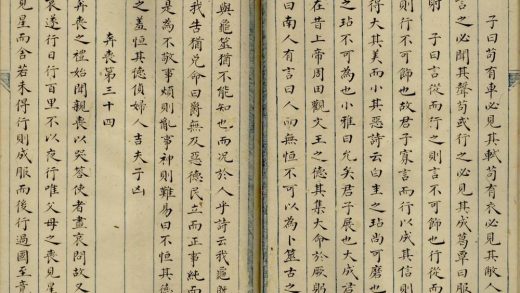 子曰苟有車必見其軾苟有衣必見其敝人
言之必聞其聲苟或行之必見其成葛覃曰服
射　子曰言從而行之則言不可飾也行從而
則行不可飾也故君子寡言而行以成其信則
得大其美而小其惡詩云白圭之玷尚可磨也
之玷不可為也小雅曰允矣君子展也大成君
在昔上帝周田觀文王之德其集大命于厥躬
曰南人有言曰人而無恒不可以為卜筮古之
與龜筮猶不能知也而況於人乎詩云我龜既
我告猶兌命曰爵無及惡德民立而正事純而
是為不敬事煩則亂事神則難易曰不恒其德
之羞恒其德偵婦人吉夫子凶
奔喪第三十四
奔喪之禮始聞親喪以哭答使者盡哀問故又
哀遂行日行百里不以夜行唯父母之喪見星
見星而舍若未得行則成服而後行過國至竟